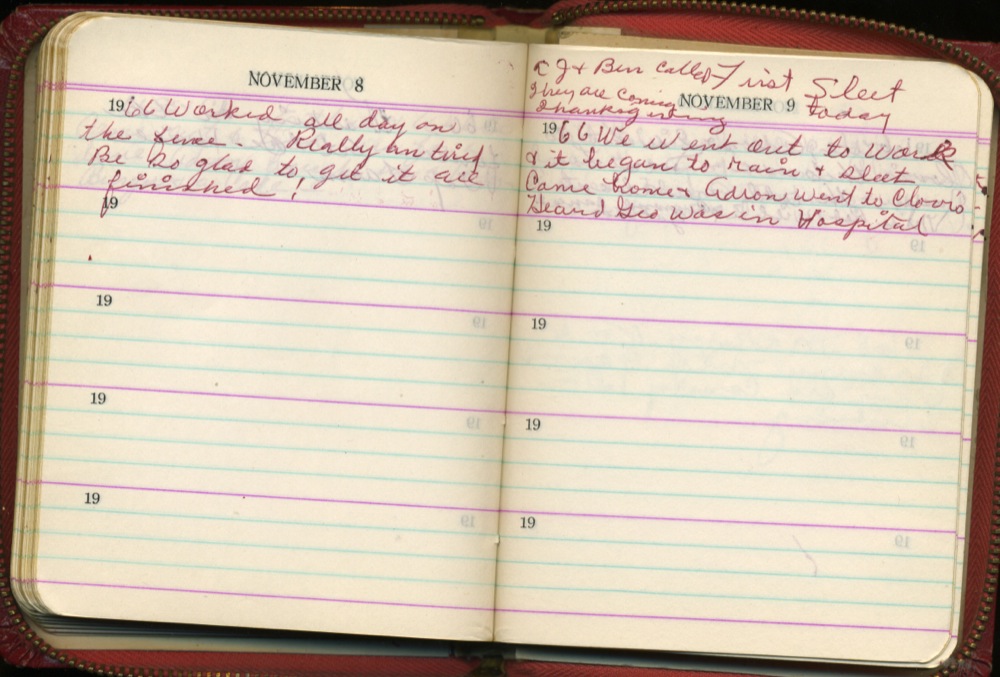 NOVEMBER 8
1966 Worked all day on
the fence. Really am tired
Be so glad to get it all
finished!
19
19
19
19
C J & Ben called First Sleet
They are coming NOVEMBER 9 today
Thanksgiving
1966 We went out to work
& it began to rain & sleet
Came home & Adron went to Clovis
Heard Geo was in Hospital
19
19
19
19